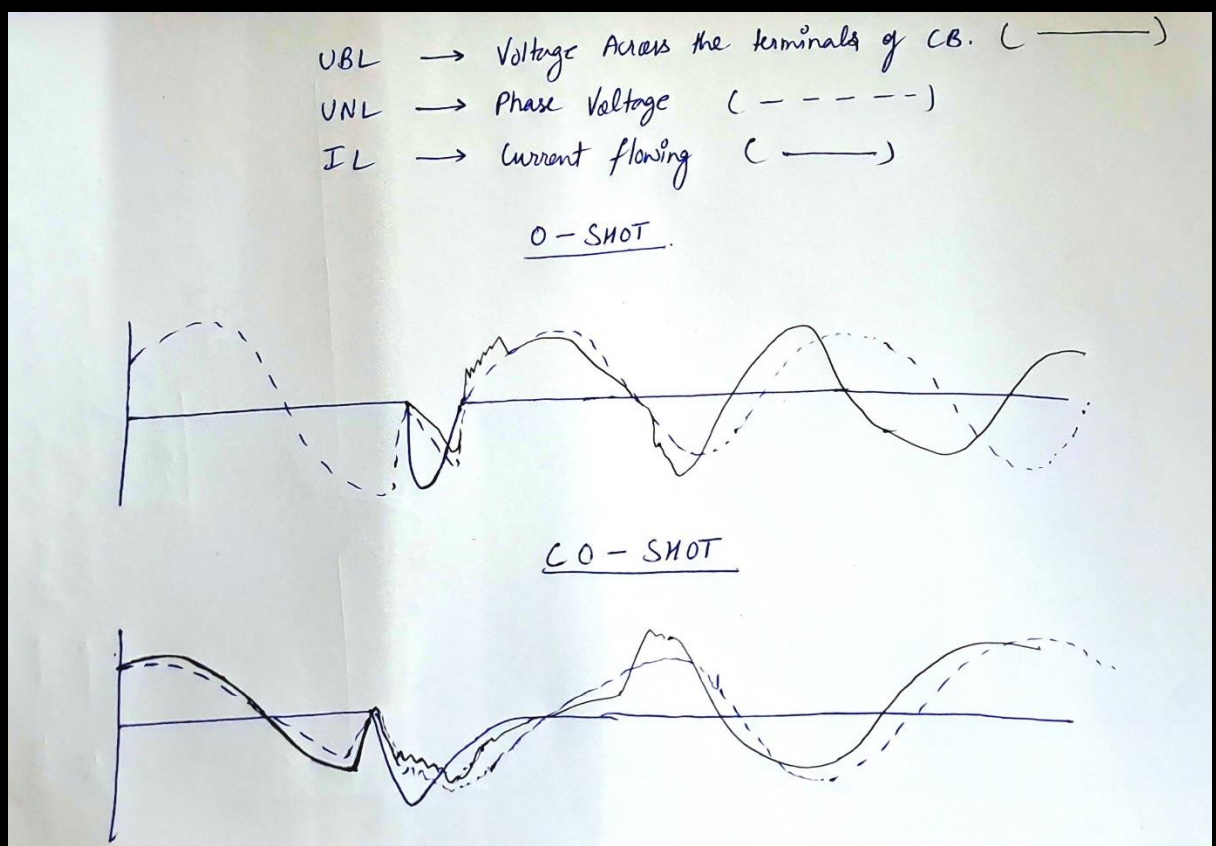 UBL → Voltage Across the terminals of CB. ( ——— )
UNL → Phase Voltage ( - - - - - )
IL → Current flowing ( ——— )
O - SHOT.
CO - SHOT